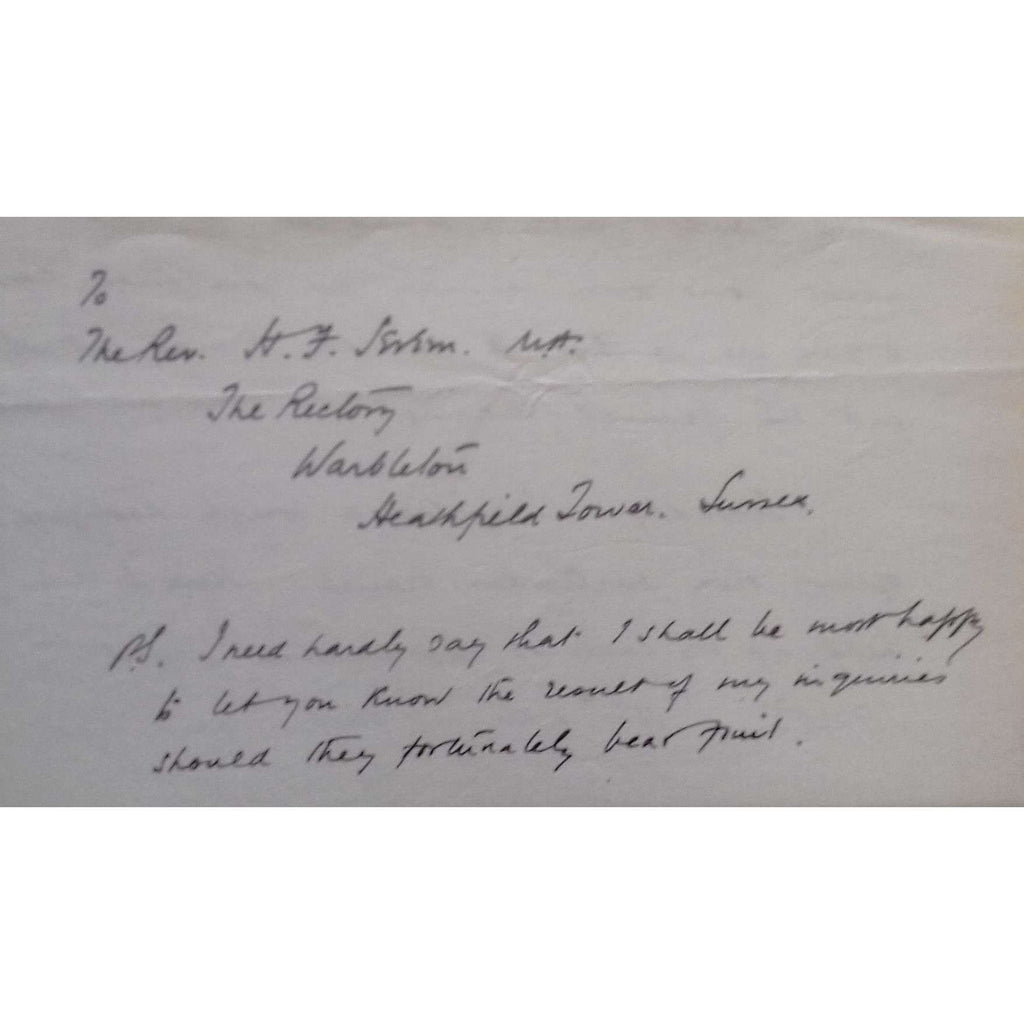 To
The Rev. H. F. M.A.
The Rectory
Warbleton
Heathfield Tower. Sussex.
P.S. I need hardly say that I shall be most happy
to let you know the result of my inquiries
should they fortunately bear fruit.